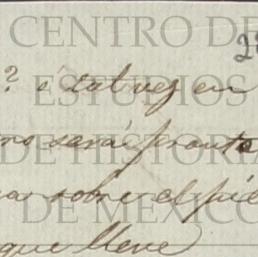 CENTRO DE
ESTUDIOS
DE HISTORIA
DE MEXICO
? é tal vez en
será pronto
sobre el
que lleve